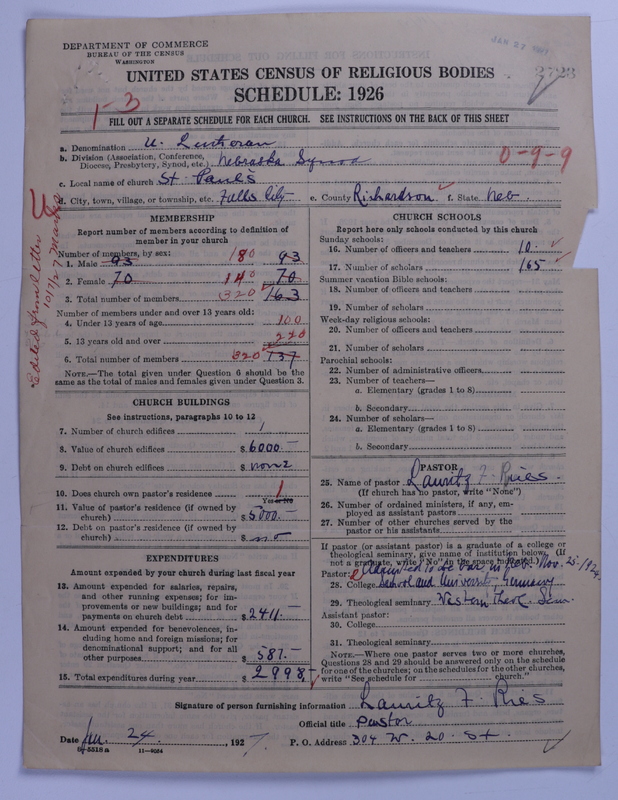 DEPARTMENT OF COMMERCE
BUREAU OF THE CENSUS
WASHINGTON
JAN 27 1927
3723
UNITED STATES CENSUS OF RELIGIOUS BODIES
SCHEDULE: 1926
1-3
FILL OUT A SEPARATE SCHEDULE FOR EACH CHURCH. SEE INSTRUCTIONS ON THE BACK OF THIS SHEET
a. Denomination U. Lutheran
b. Division (Association, Conference, Diocese, Presbytery, Synod, etc.) Nebraska Synod
0-9-9
c. Local name of church St Paul's
d. City, town, village, or township, etc. Falls City e. County Richardson f. State Neb.
Edited from letter 10/17/27
MEMBERSHIP
Report number of members according to definition of
member in your church
Number of members, by sex:
1. Male 93 180 93
2. Female 70 140 70
3. Total number of members 320 163
Number of members under and over 13 years old:
4. Under 13 years of age 100
5. 13 years old and over 220
6. Total number of members 320 137
NOTE.—The total given under Question 6 should be
same as the total of males and females given under Question 3.
CHURCH BUILDINGS
See instructions, paragraphs 10 to 12
7. Number of church edifices 1
8. Value of church edifices $ 6000.—
9. Debt on church edifices $ none
10. Does church own pastor's residence 1
Yes or No
11. Value of pastor's residence (if owned by
church) $ 5000.—
12. Debt on pastor's residence (if owned by
church) $ no
EXPENDITURES
Amount expended by your church during last fiscal year
13. Amount expended for salaries, repairs,
and other running expenses; for im-
provements or new buildings; and for
payments on church debt $ 2411.—
14. Amount expended for benevolences, in-
cluding home and foreign missions; for
denominational support; and for all
other purposes $ 587.—
15. Total expenditures during year $ 2998.—
CHURCH SCHOOLS
Report here only schools conducted by this church
Sunday schools:
16. Number of officers and teachers 10
17. Number of scholars 165
Summer vacation Bible schools:
18. Number of officers and teachers
19. Number of scholars
Week-day religious schools:
20. Number of officers and teachers
21. Number of scholars
Parochial schools:
22. Number of administrative officers
23. Number of teachers—
a. Elementary (grades 1 to 8)
b. Secondary
24. Number of scholars—
a. Elementary (grades 1 to 8)
b. Secondary
PASTOR
25. Name of pastor Lauritz F. Ries.
(If church has no pastor, write "None")
26. Number of ordained ministers, if any, em-
ployed as assistant pastors
27. Number of other churches served by the
pastor or his assistants
If pastor (or assistant pastor) is a graduate of a college or
theological seminary, give name of institution below. (If
not a graduate, write "No" in the space indicated.)
Pastor: Nov. 25/1924
28. College School and University Germany
29. Theological seminary Western Theol. Sem.
Assistant pastor:
30. College
31. Theological seminary
NOTE.—Where one pastor serves two or more churches,
Questions 28 and 29 should be answered only on the schedule
for one of the churches; on the schedules for the other churches,
write "See schedule for church."
Signature of person furnishing information Lauritz F. Ries
Official title Pastor
Date Jan. 24, 1927. P. O. Address 304 W. 20. St.
8—5518a 11—9554